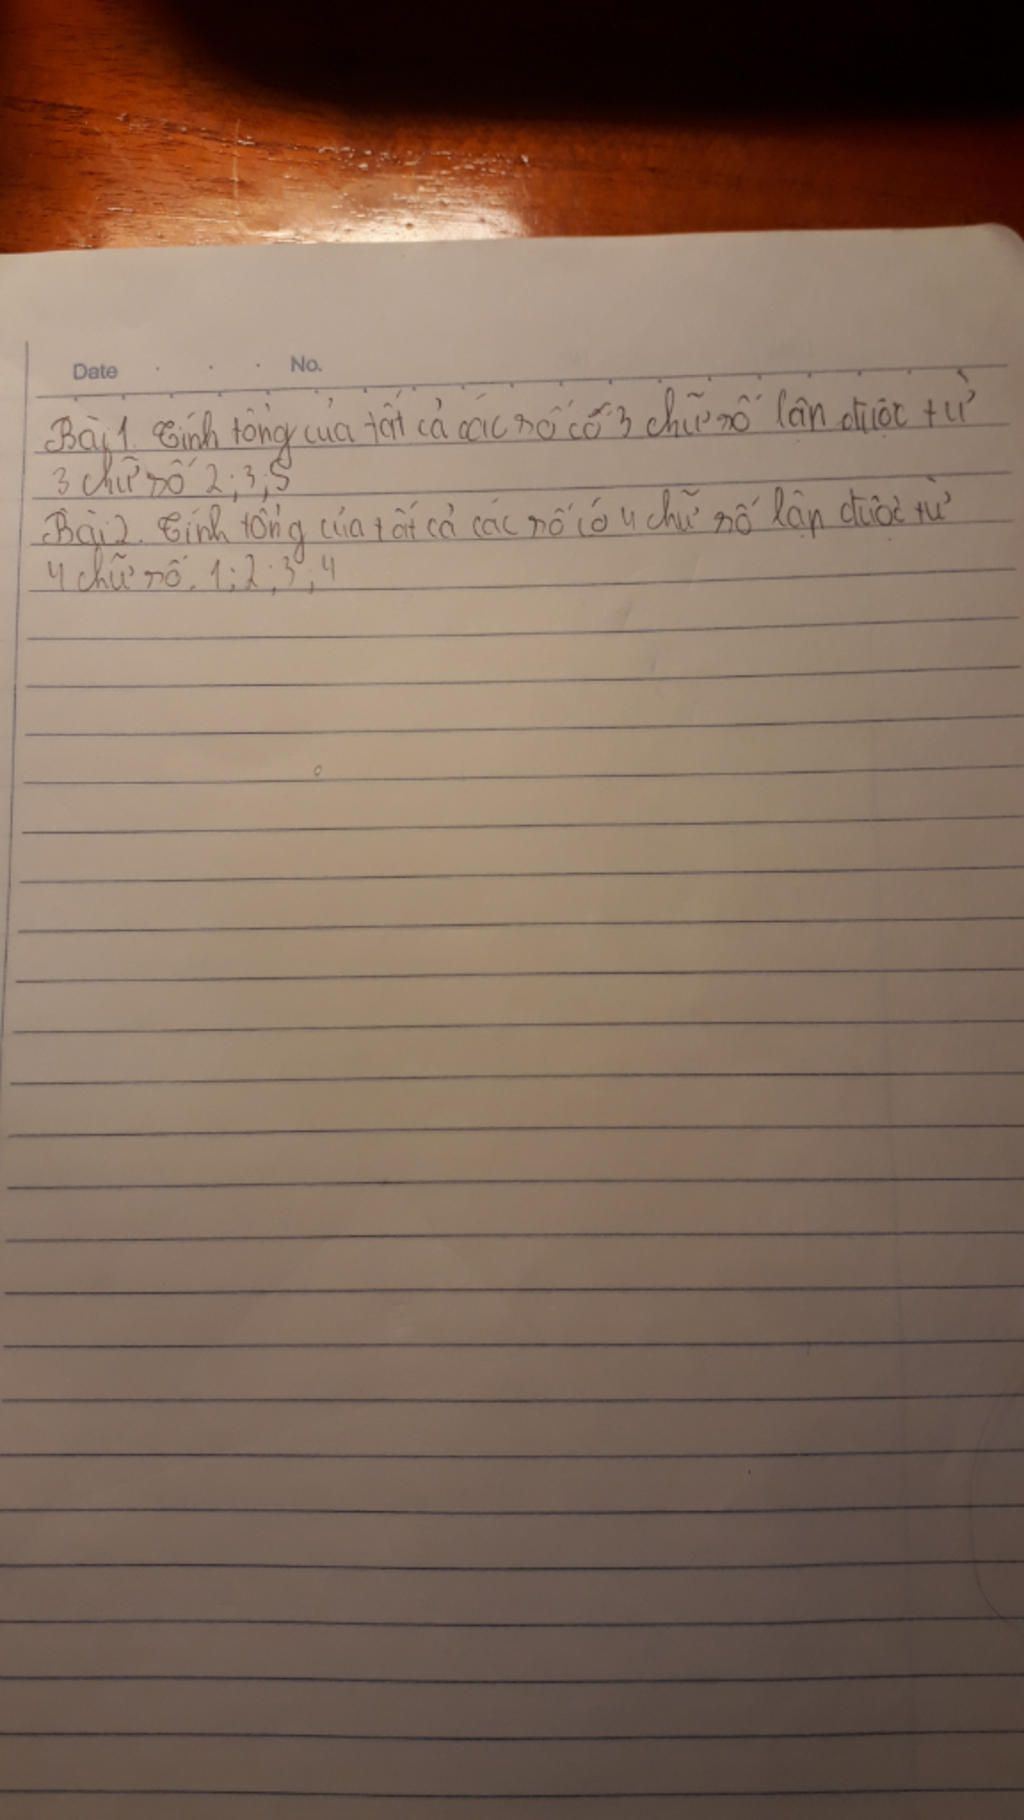 Date No.
Bài 1. Tính tổng của tất cả các số có 3 chữ số lập được từ
3 chữ số 2; 3; 5
Bài 2. Tính tổng của tất cả các số có 4 chữ số lập được từ
4 chữ số. 1; 2; 3; 4